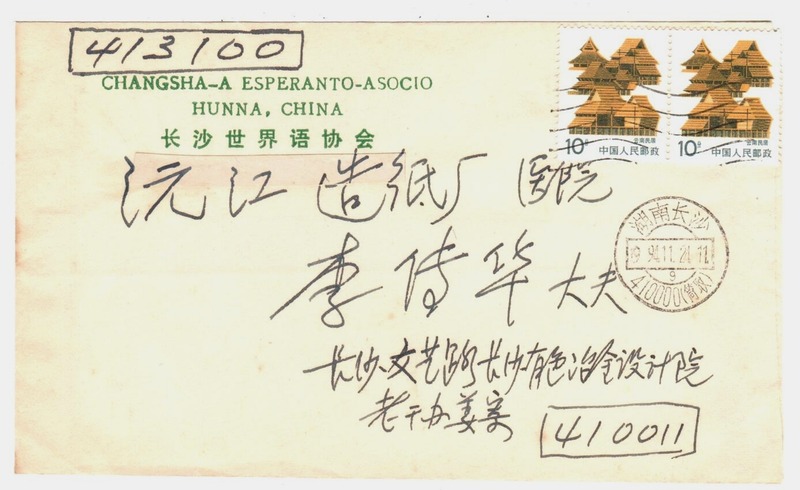 413100
CHANGSHA-A ESPERANTO-ASOCIO
HUNNA, CHINA
长沙世界语协会
10分
云南民居
中国人民邮政
10分
云南民居
中国人民邮政
沅江造纸厂医院
李传华大夫
湖南长沙
94.11.24.11
410000(筒取)
长沙文艺路长沙有色冶金设计院
老干办姜寄
410011